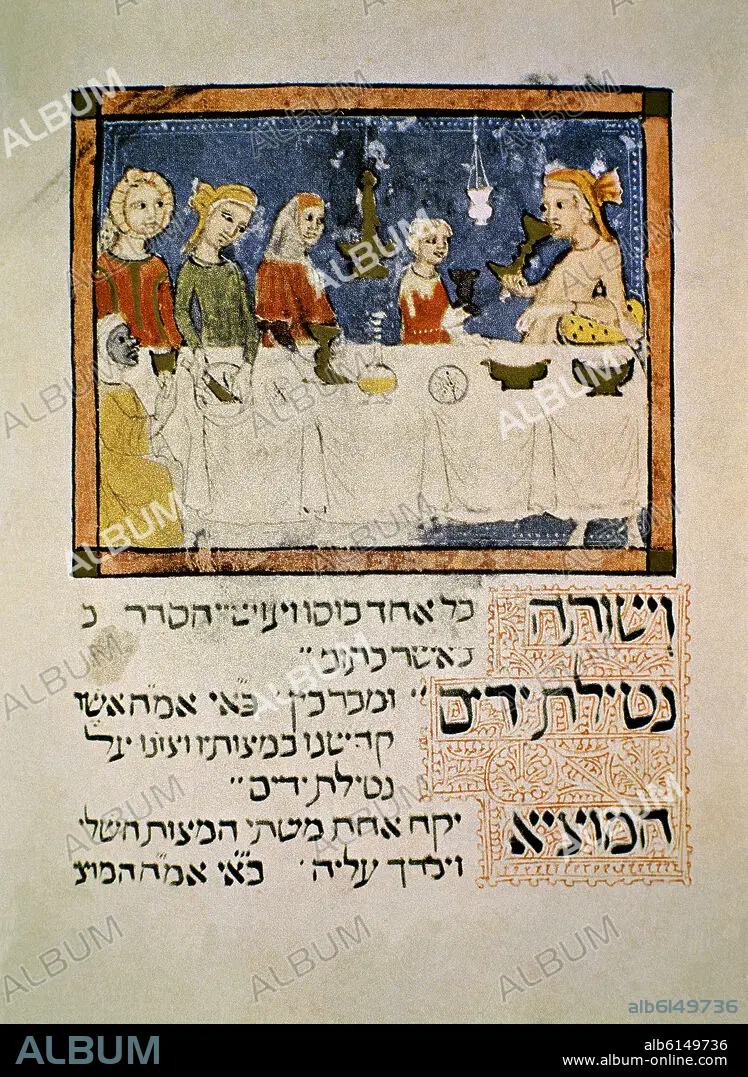 ושותה כל אחד כוסו הסדר כ
כאשר כתוב״
נטילת ידים ״ ומברכין בא״י אמ״ה אשר
קדישנו במצותיו וצונו על
נטילת ידים״
המוציא יקח אחת משתי המצות השלי
ויברך עליה׳ בא״י אמ״ה המוצ
alb6149736
ALBUM
alb6149736
www.album-online.com